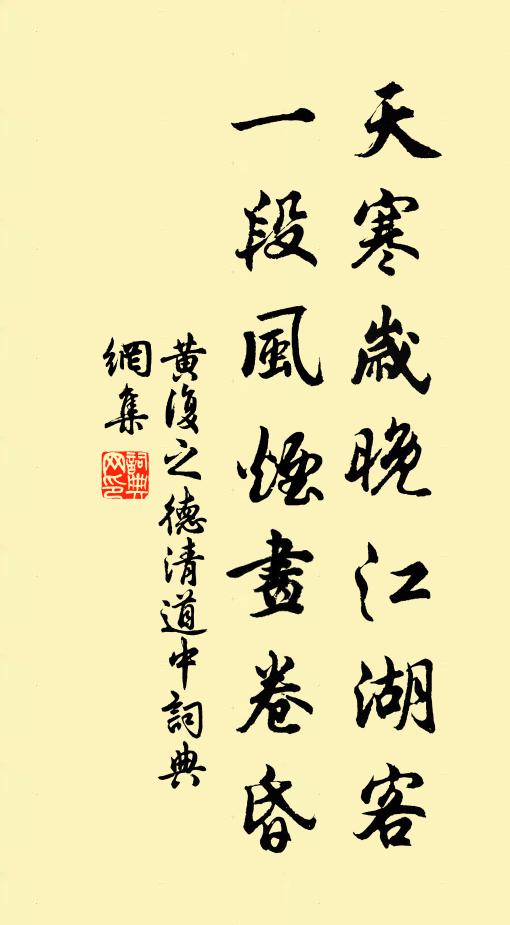 天寒歲晚江湖客
一段風煙畫卷昏
黃復之德清道中詞典
網集
詞典網印